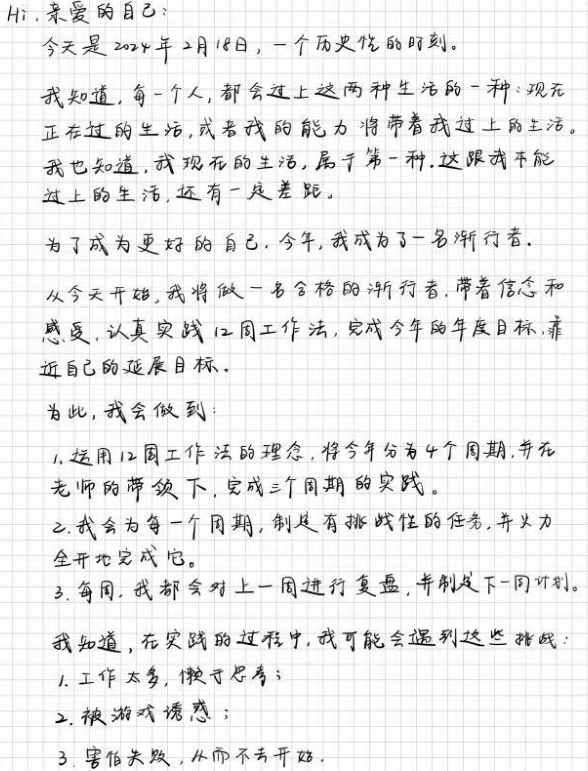 Hi,亲爱的自己:
今天是2024年2月18日,一个历史性的时刻。
我知道,每一个人,都会过上这两种生活的一种:现在
正在过的生活,或者我的能力将带着我过上的生活。
我也知道,我现在的生活,属于第一种.这跟我本能
过上的生活,还有一定差距。
为了成为更好的自己.今年,我成为了一名渐行者.
从今天开始,我将做一名合格的渐行者.带着信念和
感受,认真实践12周工作法,完成今年的年度目标,靠
近自己的延展目标。
为此,我会做到:
1.运用12周工作法的理念,将今年分为4个周期.并在
老师的带领下,完成三个周期的实践。
2.我会为每一个周期,制定有挑战性的任务,并火力
全开地完成它。
3.每周.我都会对上一周进行复盘,并制定下一周计划。
我知道,在实践的过程中,我可能会遇到这些挑战:
1.工作太多,懒于思考;
2.被游戏诱惑;
3.害怕失败,从而不去开始.